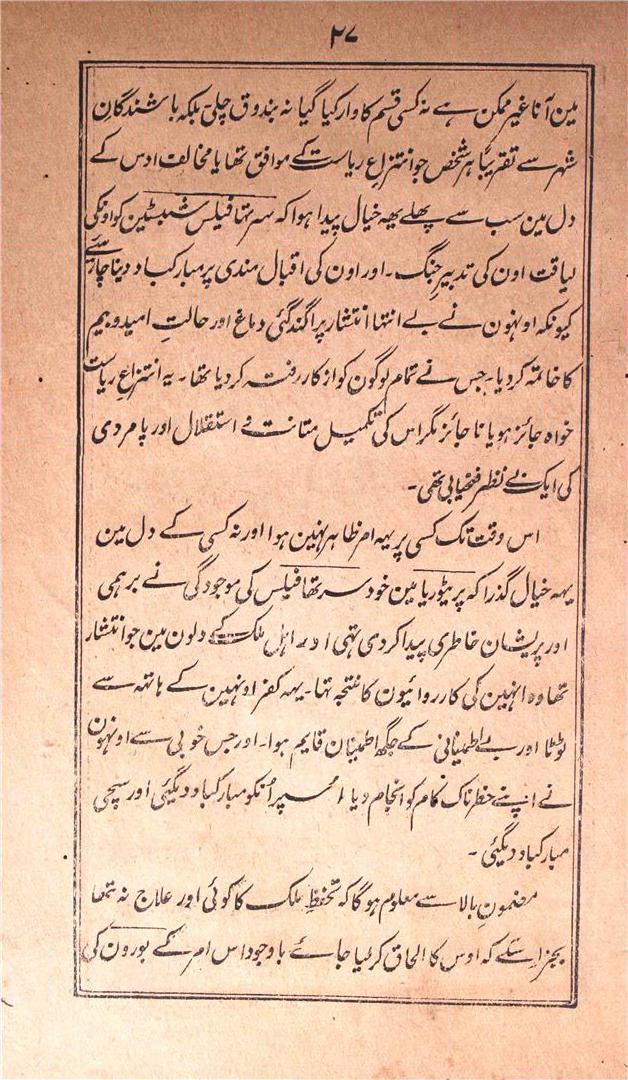 ۲۷
مین آنا غیر ممکن ہے نہ کسی قسم کا وار کیا گیا نہ بندوق چلی بلکہ باشندگان
شہر سے تقریباً ہر شخص جو انتزاعِ ریاست کے موافق تھا یا مخالف اوس کے
دل مین سب سے پھلے یھہ خیال پیدا ہوا کہ سر تھا فیلس شبسٹین کو اونکی
لیاقت اون کی تدبیرِ جنگ ۔ اور اون کی اقبال مندی پر مبارکباد دینا چاہئے
کیونکہ اونہون نے بے انتہا انتشار پراگندگئی دماغ اور حالتِ امید و بیم
کا خاتمہ کر دیا ۔ جس نے تمام لوگون کو از کار رفتہ کر دیا تھا ۔ یہ انتزاعِ ریاست
خواہ جائز ہو یا نا جائز مگر اس کی تکمیل متانت و استقلال اور پامردی
کی ایک بے نظیر فتحیابی تھی ۔
اس وقت تک کسی پر یہہ امر ظاہر نہین ہوا اور نہ کسی کے دل مین
یہہ خیال گذرا کہ پریٹوریا مین خود سر تھا فیلس کی موجودگی نے برہمی
اور پریشان خاطری پیدا کر دی تہی اور اہل ملک کے دلون مین جو انتشار
تھا وہ انہین کی کارروائیون کا نتیجہ تہا ۔ یہہ کفر اونہین کے ہاتہہ سے
ٹوٹا اور بے اطمینانی کے جگہ اطمینان قایم ہوا ۔ اور جس خوبی سے اونہون
نے اپنے خطرناک کام کو انجام دیا اسپر اُنکو مبارکباد دیگئی اور سچی
مبارکباد دیگئی ۔
مضمونِ بالا سے معلوم ہو گا کہ تحفظِ ملک کا کوئی اور علاج نہ تھا
بجز اسکے کہ اوس کا الحاق کر لیا جائے باوجود اس امر کے بورون کی